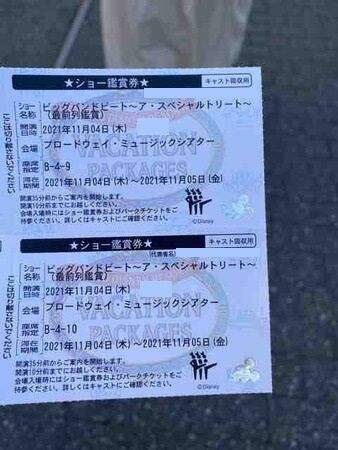 ★ショー鑑賞券★
キャスト回収用
ショー名称 ビッグバンドビート～ア・スペシャルトリート～
(最前列鑑賞)
開演日時 2021年11月04日(木)
会場 ブロードウェイ・ミュージックシアター
座席指定 B-4-9
滞在期間 2021年11月04日(木)～2021年11月05日(金)
開演35分前からご案内を開始します。
開演10分前までにお越しください。
会場入場時にはショー鑑賞券およびパークチケットをご
持参ください。詳しくはキャストにご確認ください。
©Disney
VACATION
PACKAGES
★ショー鑑賞券★
キャスト回収用
(代表者名)
ショー名称 ビッグバンドビート～ア・スペシャルトリート～
(最前列鑑賞)
開演日時 2021年11月04日(木)
会場 ブロードウェイ・ミュージックシアター
座席指定 B-4-10
滞在期間 2021年11月04日(木)～2021年11月05日(金)
開演35分前からご案内を開始します。
開演10分前までにお越しください。
会場入場時にはショー鑑賞券およびパークチケットをご
持参ください。詳しくはキャストにご確認ください。
©Disney
VACATION
PACKAGES